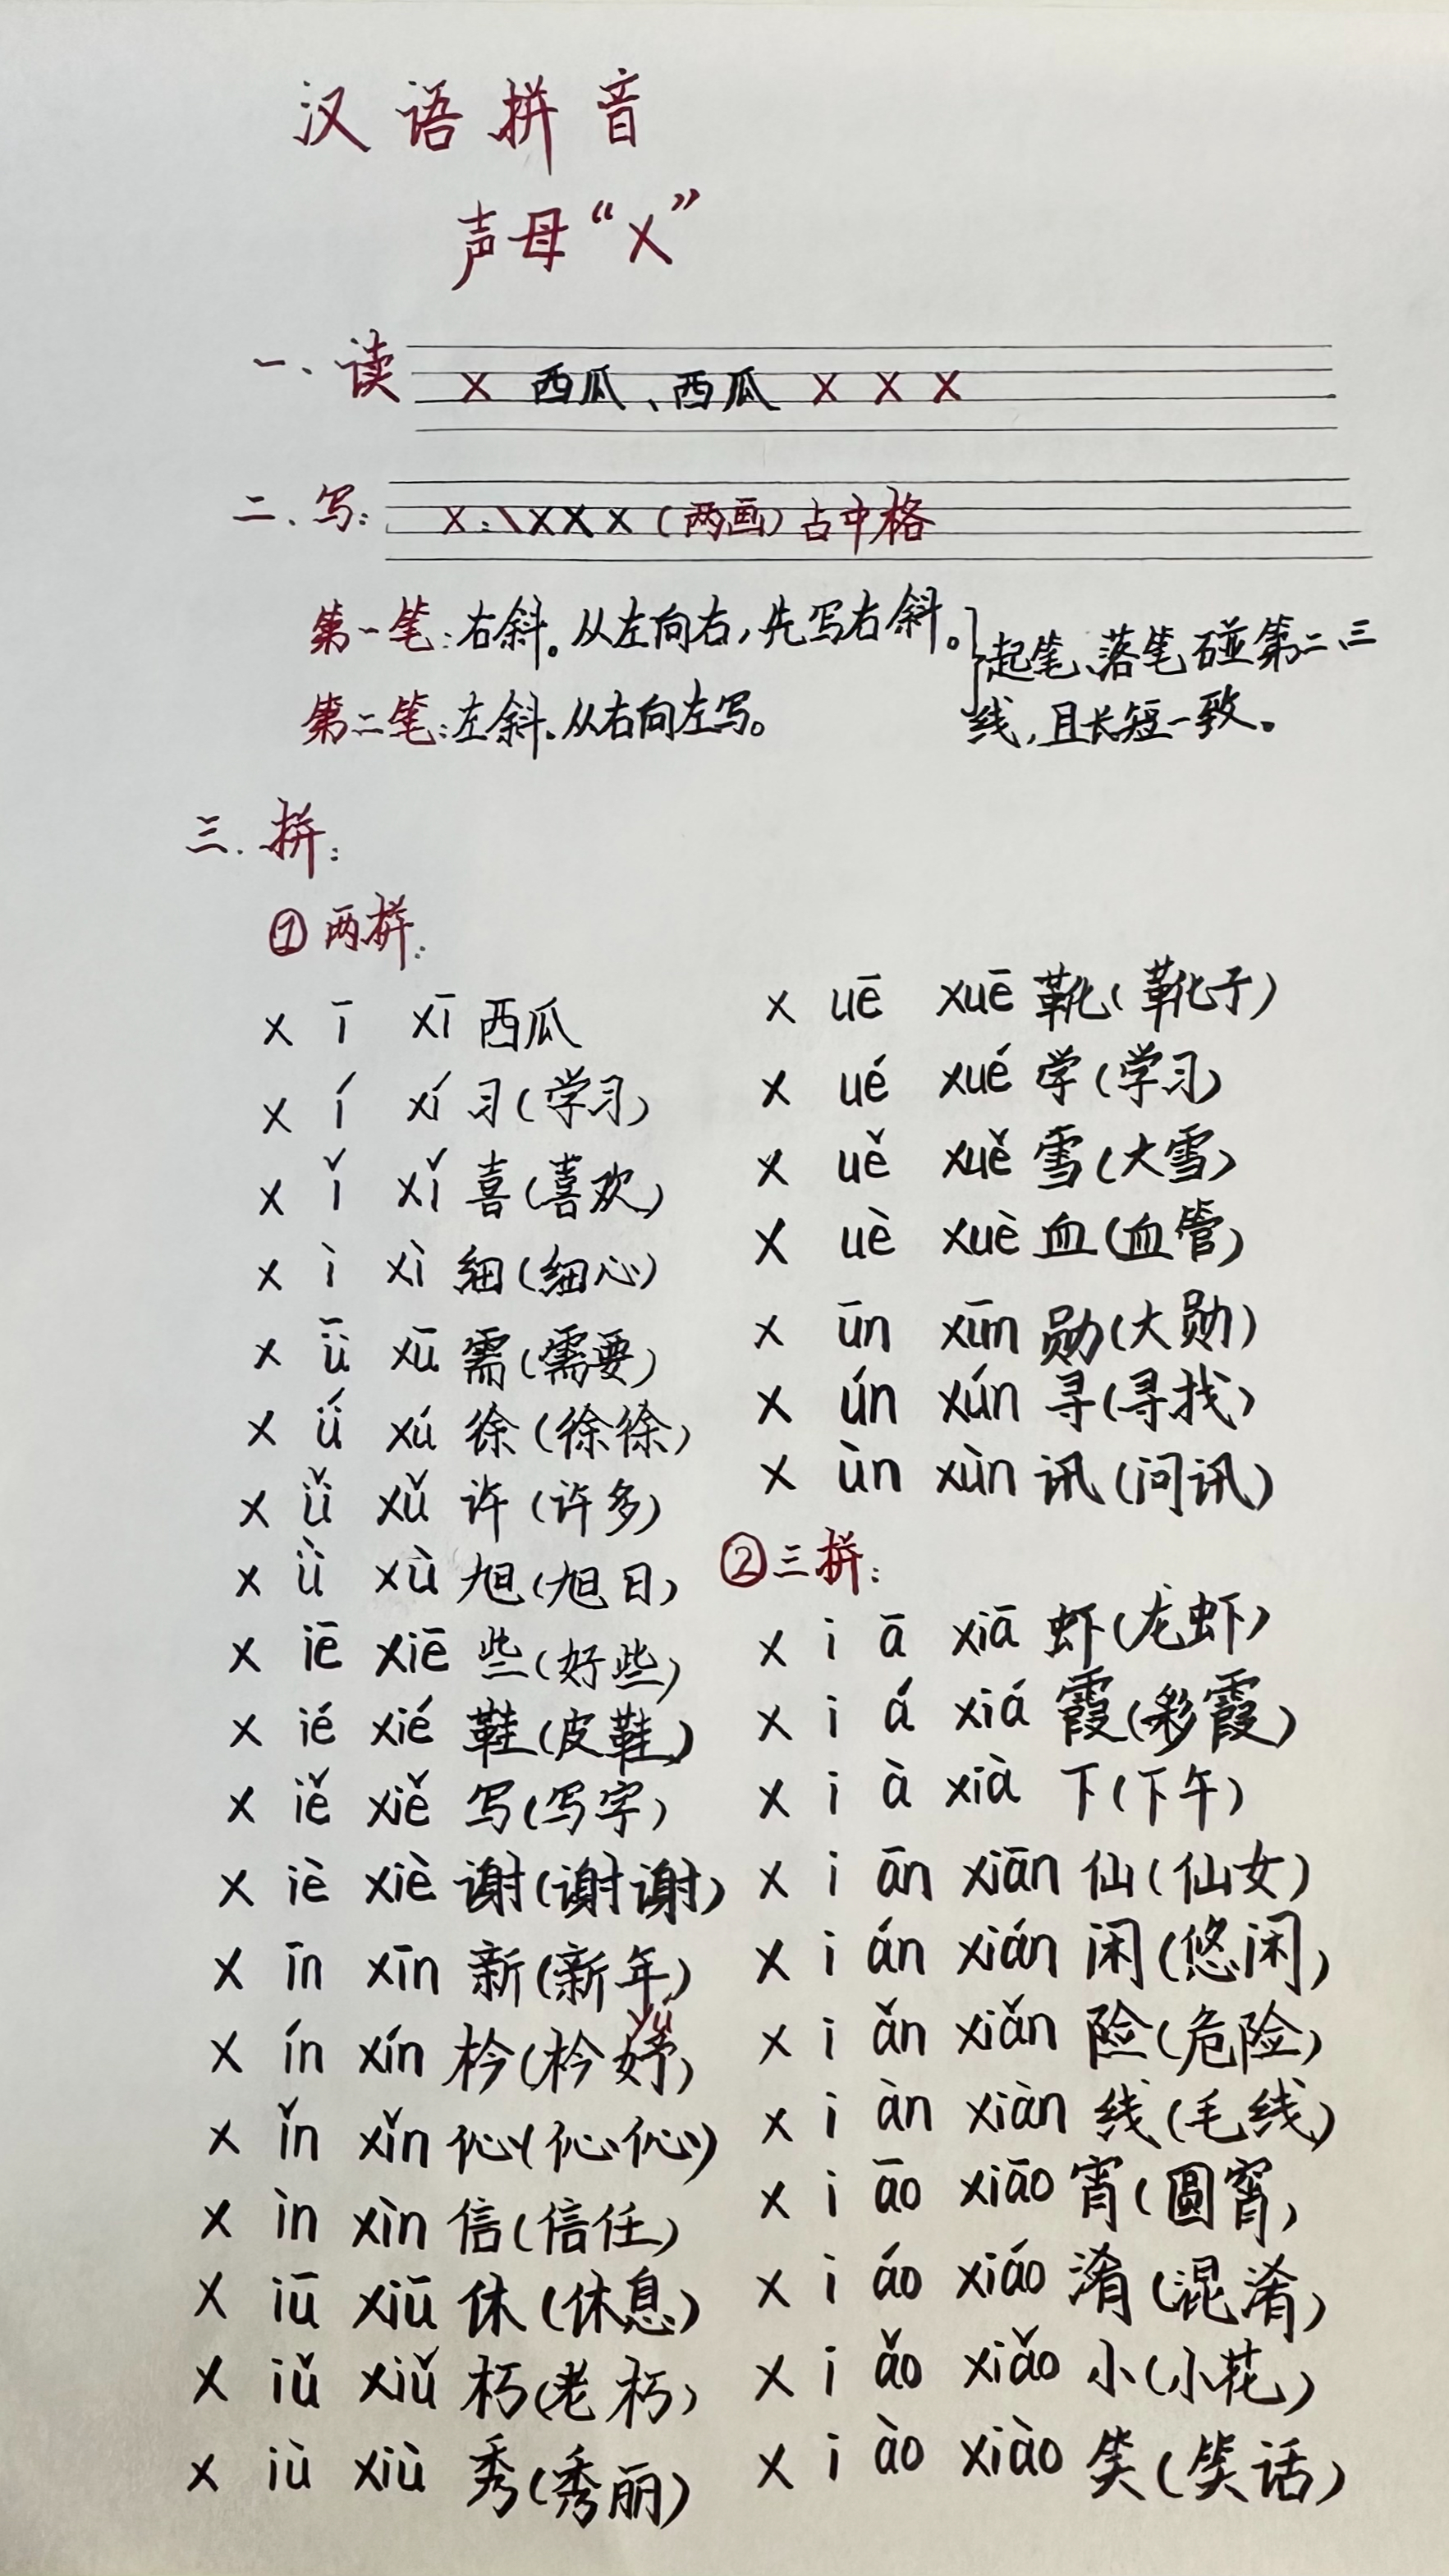 汉语拼音
声母“x”
一、读 x 西瓜、西瓜 x x x
二、写: x:\xxx(两画)占中格
第一笔:右斜。从左向右,先写右斜。
第二笔:左斜.从右向左写。
起笔、落笔碰第二、三
线,且长短一致。
三.拼:
①两拼:
x ī xī 西瓜
x í xí 习(学习)
x ǐ xǐ 喜(喜欢)
x ì xì 细(细心)
x ǖ xū 需(需要)
x ǘ xú 徐(徐徐)
x ǚ xǔ 许(许多)
x ǜ xù 旭(旭日)
x iē xiē 些(好些)
x ié xié 鞋(皮鞋)
x iě xiě 写(写字)
x iè xiè 谢(谢谢)
x īn xīn 新(新年)
yú
x ín xín 枔(枔妤)
x ǐn xǐn 伈(伈伈)
x ìn xìn 信(信任)
x iū xiū 休(休息)
x iǔ xiǔ 朽(老朽)
x iù xiù 秀(秀丽)
x uē xuē 靴(靴子)
x ué xué 学(学习)
x uě xuě 雪(大雪)
x uè xuè 血(血管)
x ūn xūn 勋(大勋)
x ún xún 寻(寻找)
x ùn xùn 讯(问讯)
②三拼:
x i ā xiā 虾(龙虾)
x i á xiá 霞(彩霞)
x i à xià 下(下午)
x i ān xiān 仙(仙女)
x i án xián 闲(悠闲)
x i ǎn xiǎn 险(危险)
x i àn xiàn 线(毛线)
x i āo xiāo 宵(圆宵)
x i áo xiáo 淆(混淆)
x i ǎo xiǎo 小(小花)
x i ào xiào 笑(笑话)